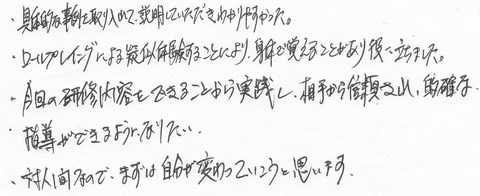 ・具体的な事例を取り入れて、説明していただきわかりやすかった。
・ロールプレイングによる疑似体験することにより、身体で覚えることがあり役に立ちました。
・今回の研修内容をできることから実践し、相手から信頼され、的確な
・指導ができるようになりたい。
・対人間なので、まずは自分が変わっていこうと思います。